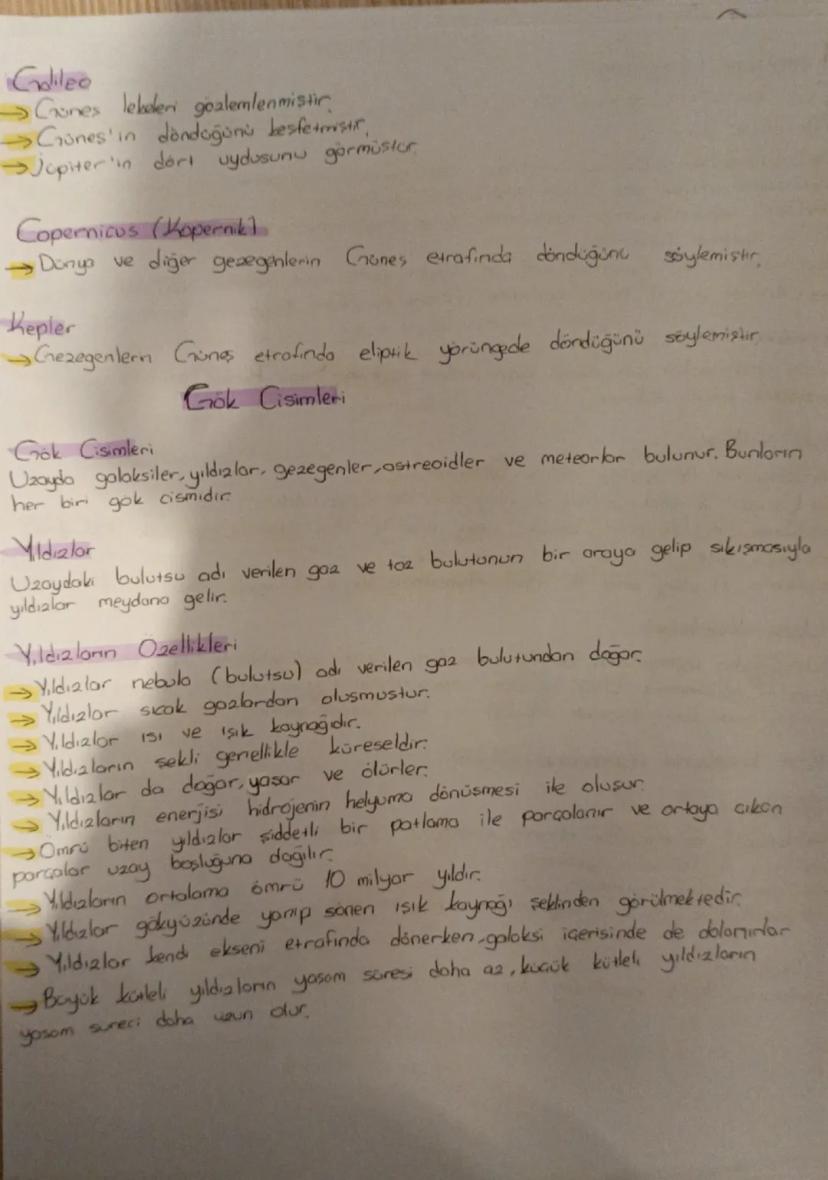 Galileo
→ Güneş lekeleri gözlemlenmiştir.
→ Güneş'in döndüğünü keşfetmiştir.
→ Jüpiter'in dört uydusunu görmüştür.
Copernicus (Kopernik)
→ Dünya ve diğer gezegenlerin Güneş etrafında döndüğünü söylemiştir.
Kepler
→ Gezegenlerin Güneş etrafında eliptik yörüngede döndüğünü söylemiştir.
Gök Cisimleri
Gök Cisimleri
Uzayda galaksiler, yıldızlar, gezegenler, astreoidler ve meteorlar bulunur. Bunların
her biri gök cismidir.
Yıldızlar
Uzaydaki bulutsu adı verilen gaz ve toz bulutunun bir araya gelip sıkışmasıyla
yıldızlar meydana gelir.
Yıldızların Özellikleri
→ Yıldızlar nebula (bulutsu) adı verilen gaz bulutundan doğar.
→ Yıldızlar sıcak gazlardan oluşmuştur.
→ Yıldızlar ısı ve ışık kaynağıdır.
→ Yıldızların şekli genellikle küreseldir.
→ Yıldızlar da doğar, yaşar ve ölürler.
→ Yıldızların enerjisi hidrojenin helyuma dönüşmesi ile oluşur.
→ Ömrü biten yıldızlar şiddetli bir patlama ile parçalanır ve ortaya çıkan
parçalar uzay boşluğuna dağılır.
→ Yıldızların ortalama ömrü 10 milyar yıldır.
→ Yıldızlar gökyüzünde yanıp sönen ışık kaynağı şeklinden görülmektedir.
→ Yıldızlar kendi ekseni etrafında dönerken, galaksi içerisinde de dolanırlar
→ Büyük kütleli yıldızların yaşam süresi daha az, küçük kütleli yıldızların
yaşam süreci daha uzun olur.